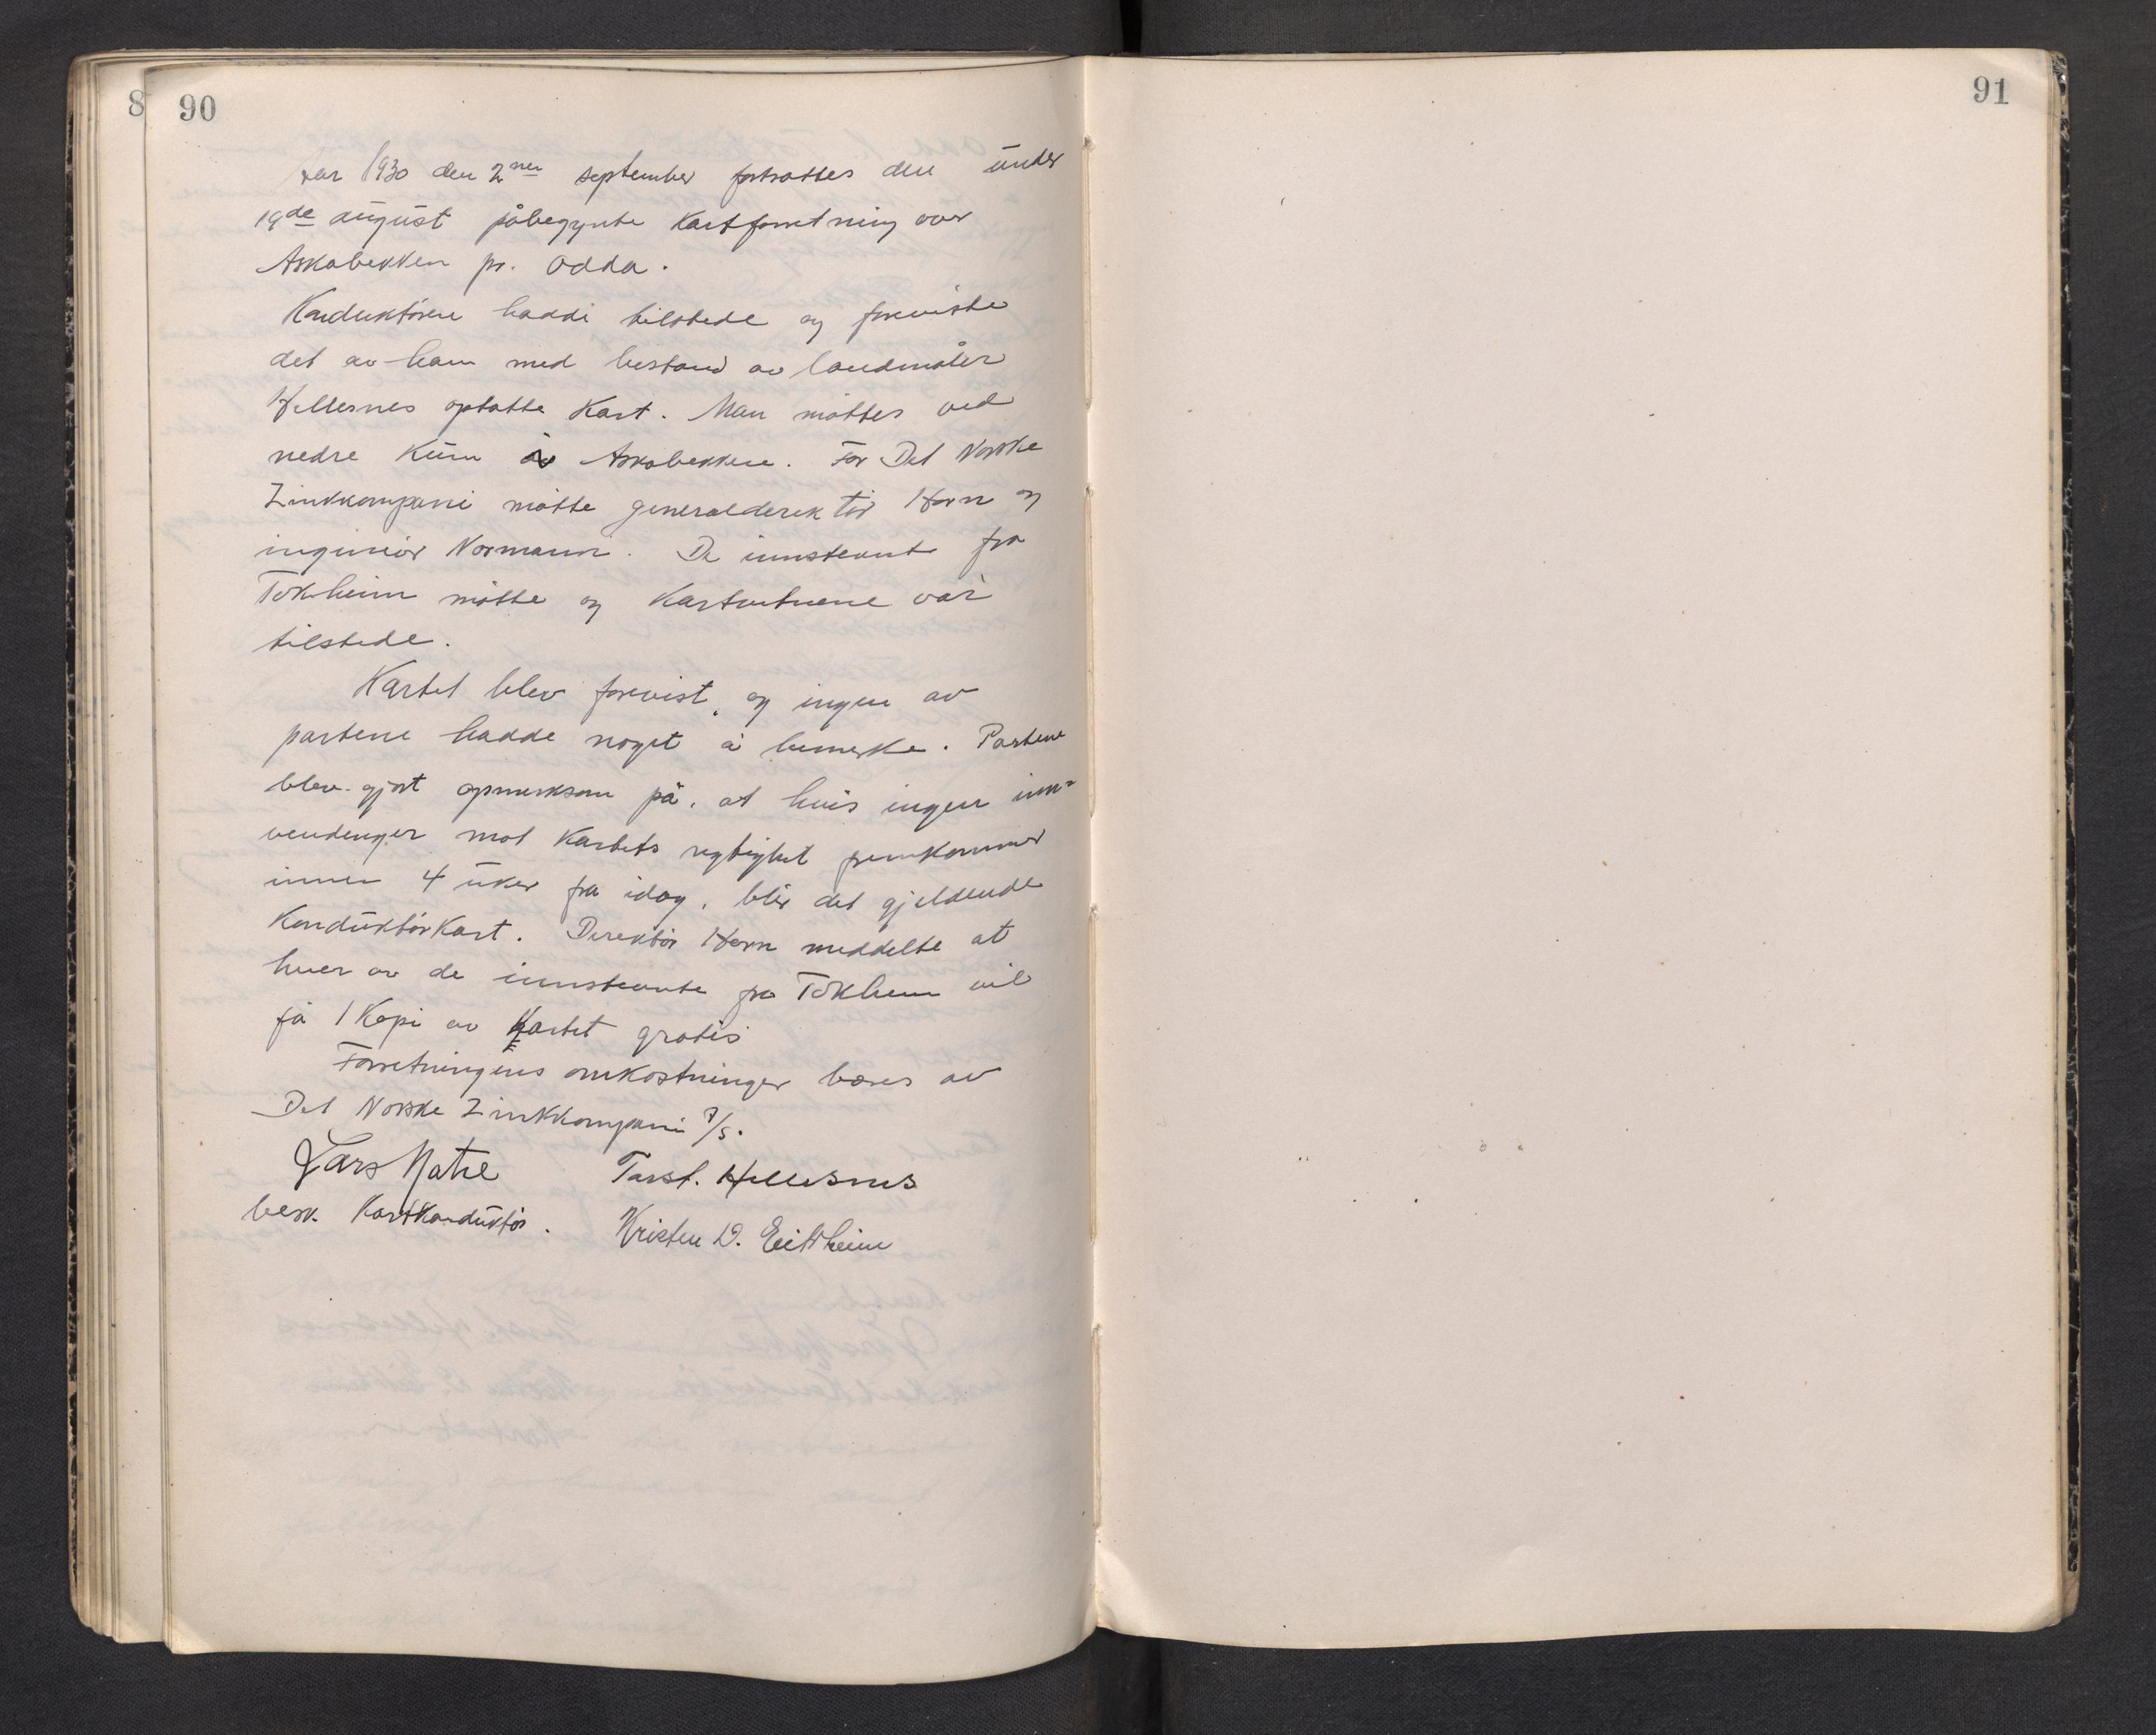 8
90
91
Aar 1930 den 2nen september fortsattes den under
19de august påbegynte Kartforretning over
Askabekken pr. Odda.
Konduktøren hadde tilstede og foreviste
det av ham med bistand av landmåler
Hellesnes optatte Kart. Man møttes ved
nedre Kum av Askabekken. For Det Norske
Zinkkompani møtte generaldirektør Horn og
ingeniør Normann. De innstevnte fra
Tokheim møtte og Kartvitnene var
tilstede.
Kartet blev forevist, og ingen av
partene hadde noget å bemerke. Partene
blev gjort opmerksom på, at hvis ingen inn=
vendinger mot Kartets rigtighet fremkommer
innen 4 uker fra idag, blir det gjeldende
Konduktørkart. Direktør Horn meddelte at
hver av de innstevnte fra Tokheim vil
få 1 Kopi av Kartet gratis
Forretningens omkostninger bæres av
Det Norske Zinkkompani A/S.
Lars Natie
Torst. Hellesnes
besk. Kartkonduktør.
Kristen D. Eitrheim